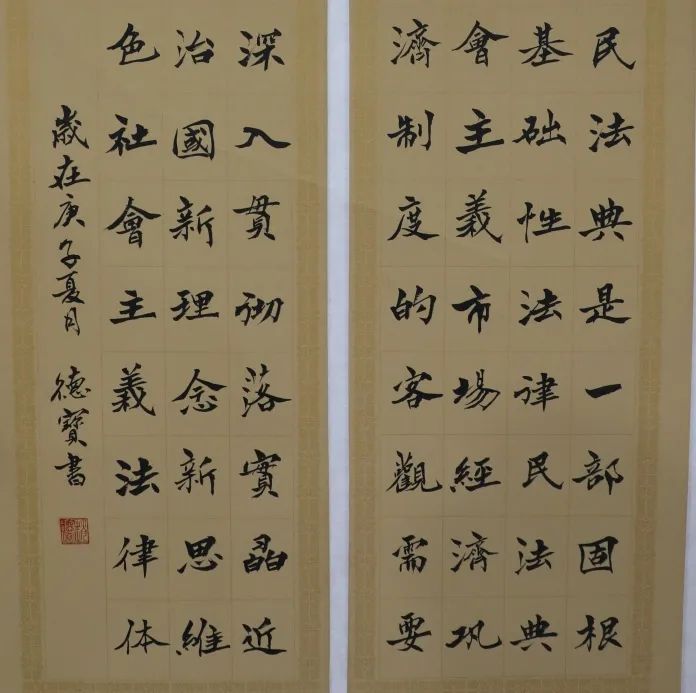 民法典是一部固根
基础性法律民法典
會主義市場經濟巩
濟制度的客觀需要
深入貫彻落實晶近
治國新理念新思維
色社會主義法律体
歲在庚子夏月 德寶書